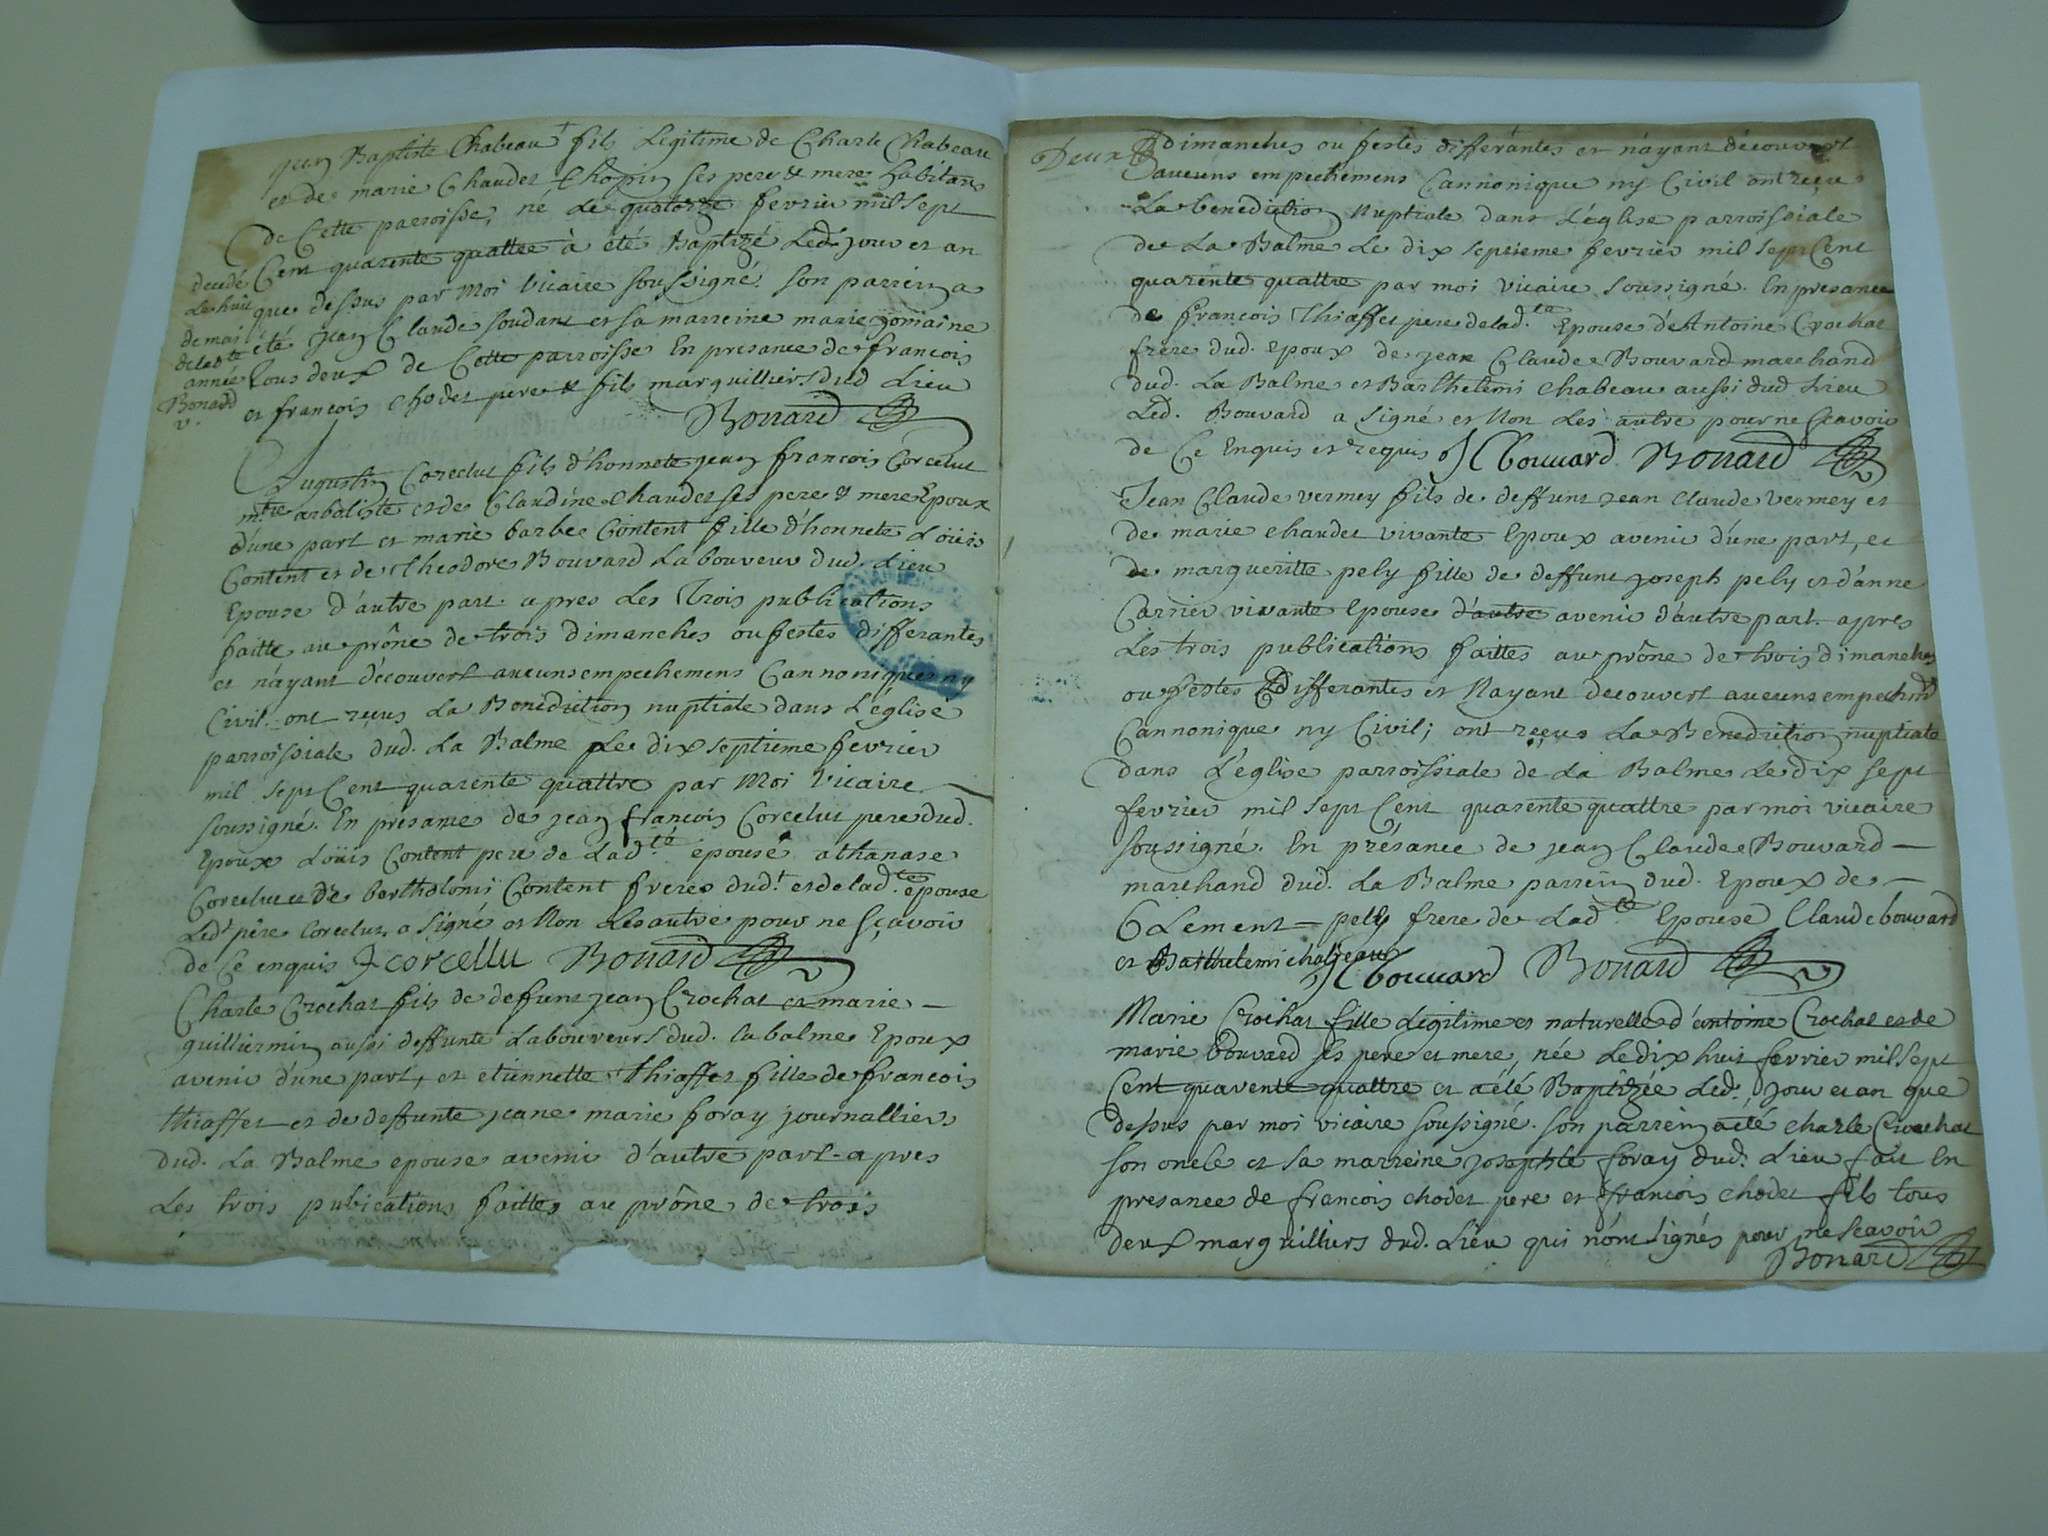 Jean Baptiste Chabeau fils Legitime de Charle Chabeau
et de marie Chaudet Choppin ses pere & mere habitans
de Cette parroisse, né Le quatorze fevrier mil sept
Cent quarente quattre à été Baptizé Led. jour et an
que dessus par Moi Vicaire soussigné. son parrein a
été Jean Claude soudant et sa marreine marie romaine
tous deux de Cette parroisse En presance de françois
et françois Chodet pere & fils marguilliers dud Lieu
Bonard
decedé
Le huit
de mai
de lad.te
année
Bonard
v.
Augustin Corcelut fils d'honnete jean françois Corcelut
m.tre arbaliste et de Claudine Chaudet ses pere & mere Epoux
d'une part et marie barbe Content fille d'honnete Loüis
Content et de Theodore Bouvard Laboureur dud. Lieu
Epouse d'autre part. apres Les Trois publications
faitte au prône de trois Dimanches ou festes differantes
et n'ayant découvert aucuns empechemens Cannoniques ny
Civil. ont reçus La Benediction nuptiale dans L'église
parroissiale dud. La Balme Le dix septieme fevrier
mil sept Cent quarente quattre par Moi Vicaire
soussigné. En presance de jean françois Corcelut pere dud.
Epoux Loüis Content pere de Lad.te épouse athanase
Corcelut et de bertholomi Content freres dud.t et de lad.te épouse
Led.t père Corcelut a signé et Non Les autre pour ne sçavoir
de Ce enquis J corcellu Bonard
Charle Crochat fils de deffunt jean Crochat et marie
guilliermin aussi deffunte Laboureurs dud. la balme Epoux
avenir d'une part, et etiennette Thiaffet fille de françois
thiaffet et de deffunte jeane marie foray journalliers
dud. La Balme epouse avenir d'autre part. apres
Les trois pubications faittes au prône de trois
Deux
dimanches ou festes differantes et n'ayant découvert
aucuns empechemens Cannonique ny Civil ont reçu
La benediction Nuptiale dans L'église parroissiale
de La Balme Le dix septieme fevrier mil sept Cent
quarente quattre par moi vicaire soussigné. En presance
de françois Thiaffet pere de lad.te Epouse d'Antoine Crochat
frère dud. epoux de jean Claude Bouvard marchand
dud. La Balme et Barthelemi Chabeau aussi dud Lieu
Led. Bouvard a signé et Non Les autre pour ne sçavoir
de Ce Enquis et requis JC bouvard Bonard
Jean Claude vermey fils de deffunt jean Claude vermey et
de marie chaudet vivante Epoux avenir d'une part, et
de margueritte pely fille de deffunt joseph pely et d'anne
Carrier vivante Epouse d'autre avenir d'autre part. apres
Les trois publications faittes au prône de trois dimanches
ou festes differantes et Nayant decouvert aucuns empechm.t
Cannonique ny Civil; ont reçus La Benediction nuptiale
dans L'église parroissiale de La Balme Le dix sept
fevrier mil sept Cent quarente quattre par moi vicaire
soussigné. En présance de jean Claude Bouvard
marchand dud. La Balme parrein dud. Epoux de
Clement pely frere de Lad.te Epouse Claude bouvard
et Barthelemi chabeau
JC bouvard Bonard
Marie Crochat fille Légitime et naturelle d'antoine Crochat et de
marie bouvard ses pere et mere, née Le dix huit fevrier mil sept
Cent quarente quattre et a été Baptizée Led. jour et an que
dessus par moi vicaire soussigné. son parrein a été charle Crochat
son oncle et sa marreine josephte foray dud. Lieu fait En
presance de françois chodet pere et françois chodet fils tous
deux marguilliers dud. Lieu qui n'ont signés pour ne scavoir
Bonard